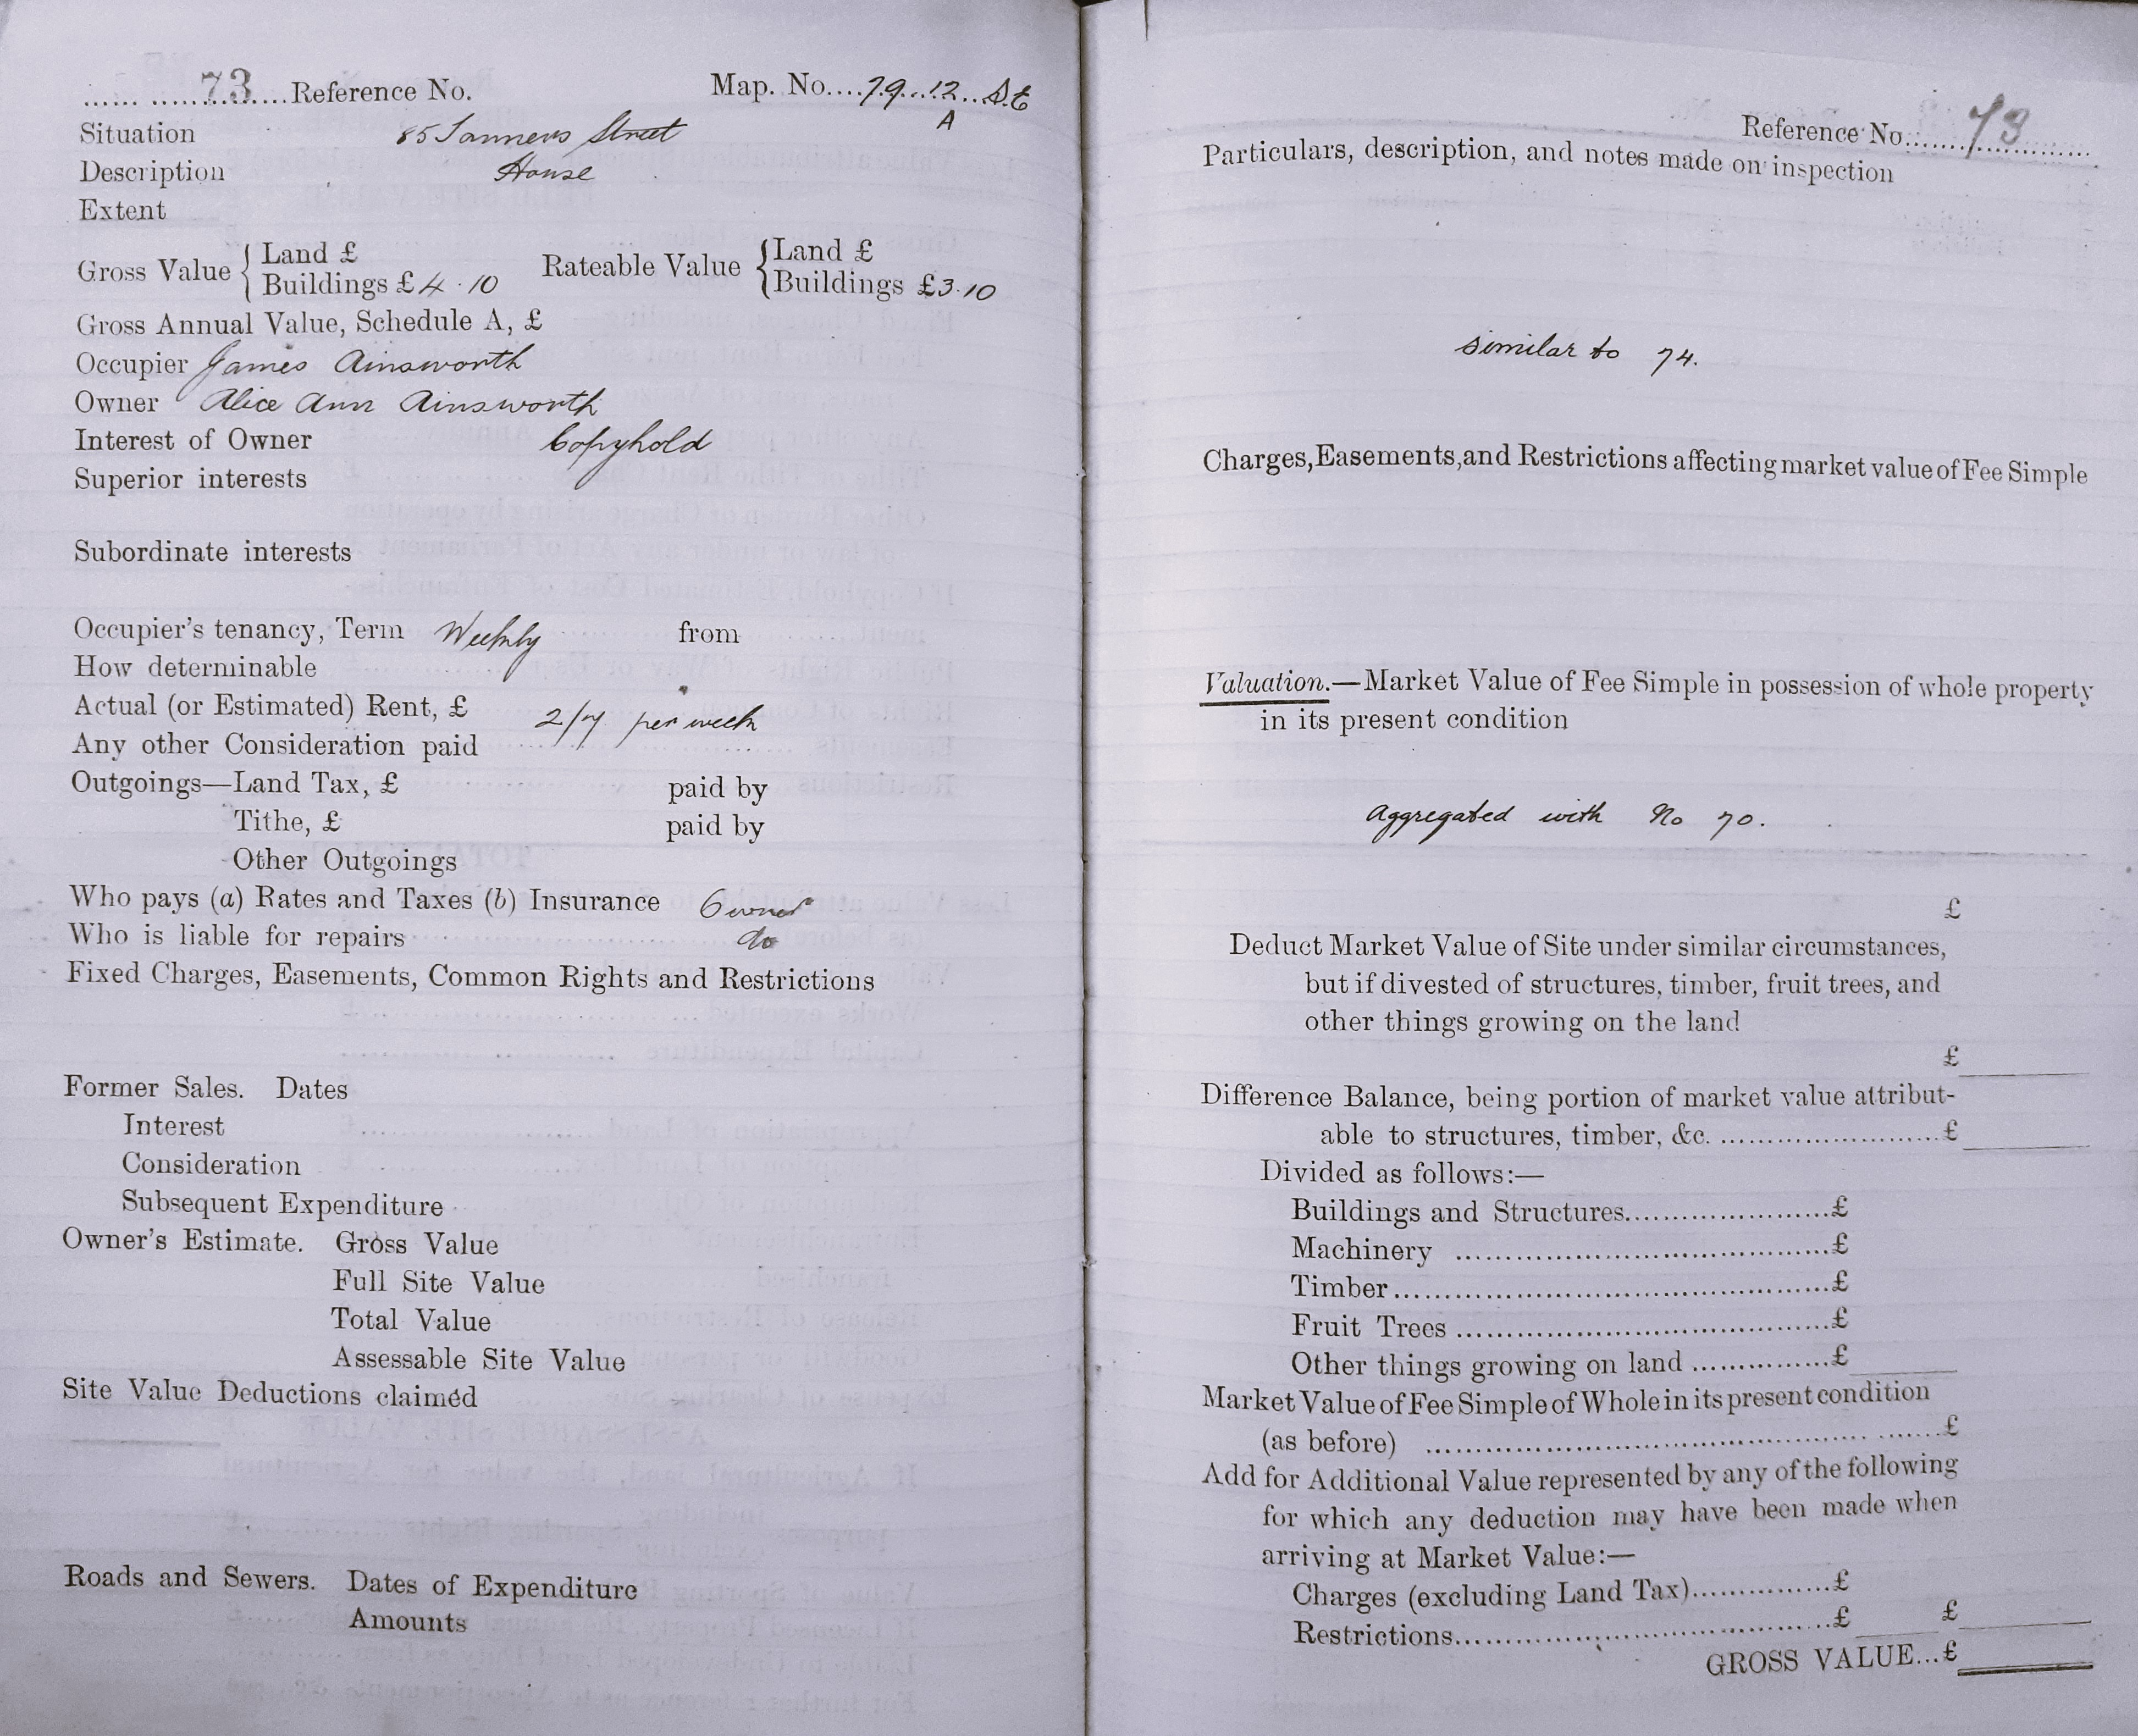 ...... ..........73....Reference No.
Map. No....79...12...S.E
A
Situation 85 Tanners Street
Description House
Extent
Gross Value { Land £
Buildings £ 4 . 10
Rateable Value { Land £
Buildings £3.10
Gross Annual Value, Schedule A, £
Occupier James Ainsworth
Owner Alice Ann Ainsworth
Interest of Owner Copyhold
Superior interests
Subordinate interests
Occupier's tenancy, Term Weekly from
How determinable
Actual (or Estimated) Rent, £ 2/7 per week
Any other Consideration paid
Outgoings—Land Tax, £ paid by
Tithe, £ paid by
Other Outgoings
Who pays (a) Rates and Taxes (b) Insurance Owner
Who is liable for repairs do
Fixed Charges, Easements, Common Rights and Restrictions
Former Sales. Dates
Interest
Consideration
Subsequent Expenditure
Owner's Estimate. Gross Value
Full Site Value
Total Value
Assessable Site Value
Site Value Deductions claimed
Roads and Sewers. Dates of Expenditure
Amounts
Reference No........73..............
Particulars, description, and notes made on inspection
similar to 74.
Charges, Easements, and Restrictions affecting market value of Fee Simple
Valuation.—Market Value of Fee Simple in possession of whole property
in its present condition
Aggregated with No 70.
£
Deduct Market Value of Site under similar circumstances,
but if divested of structures, timber, fruit trees, and
other things growing on the land
£
Difference Balance, being portion of market value attribut-
able to structures, timber, &c. ..........................£
Divided as follows:—
Buildings and Structures.......................£
Machinery .......................................£
Timber.............................................£
Fruit Trees .......................................£
Other things growing on land ...............£
Market Value of Fee Simple of Whole in its present condition
(as before) ......................................................£
Add for Additional Value represented by any of the following
for which any deduction may have been made when
arriving at Market Value:—
Charges (excluding Land Tax)...............£
Restrictions.........................................£ £
GROSS VALUE...£